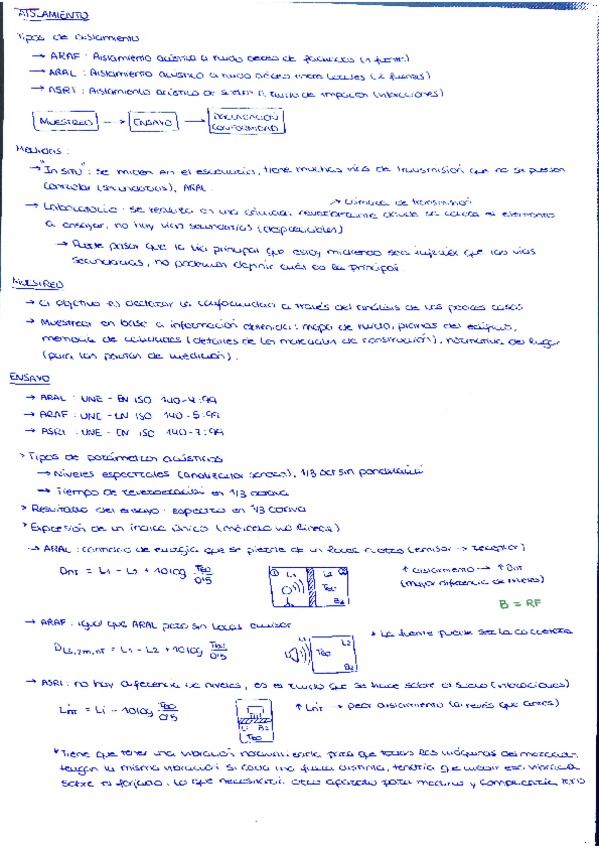 AISLAMIENTO
Tipos de aislamiento
→ ARAF: Aislamiento acústico a ruido aéreo de fachadas (1 fuente)
→ ARAL: Aislamiento acústico a ruido aéreo entre locales (2 fuentes)
→ ASRI: Aislamiento acústico de suelos a ruido de impactos (vibraciones)
MUESTREO → ENSAYO → DECLARACIÓN CONFORMIDAD
Medidas:
→ "In situ": se miden en el escenario, tiene muchas vías de transmisión que no se pueden
controlar (secundarias), ARAL.
→ cámara de transmisión
→ Laboratorio: se realiza en una cámara reverberante donde se coloca el elemento
a ensayar, no hay vías secundarias (despreciables)
→ Puede pasar que la vía principal que estoy midiendo sea inferior que las vías
secundarias, no podemos definir cuál es la principal.
MUESTREO
→ El objetivo es declarar la conformidad a través del análisis de los peores casos
→ Muestrear en base a información obtenida: mapa de ruido, planos del edificio,
memoria de calidades (detalles de los materiales de construcción), normativa del lugar
(para los puntos de medición).
ENSAYO
→ ARAL: UNE - EN ISO 140-4:99
→ ARAF: UNE - EN ISO 140-5:99
→ ASRI: UNE - EN ISO 140-7:99
> Tipos de parámetros acústicos
→ Niveles espectrales (analizador ), 1/3 oct sin ponderación
→ Tiempo de reverberación en 1/3 octava
> Resultado del ensayo: espectro en 1/3 octava
> Expresión de un índice único (no lineal)
→ ARAL: cantidad de energía que se pierde de un local a otro (emisor → receptor)
DnT = L1 - L2 + 10 log T60/0'5
① L1 L2 ② T60 B2
↑ aislamiento → ↑ DnT
(mayor diferencia de niveles)
B = RF
→ ARAF: igual que ARAL pero sin local emisor
Dls,2m,nT = L1 - L2 + 10 log T60/0'5
L2 T60 B2
* La fuente puede ser la carretera
→ ASRI: no hay diferencia de niveles, es el ruido que se hace sobre el suelo (vibraciones)
L'nT = Li - 10 log T60/0'5
Li B2 T60
↑ L'nT → peor aislamiento (al revés que antes)
* Tiene que tener una vibración normalizada para que todas las máquinas del mercado
tengan la misma vibración. Si cada una fuera distinta, tendría que medir esa vibración
sobre el forjado. Lo que necesitaría otros aparatos para medirlo y